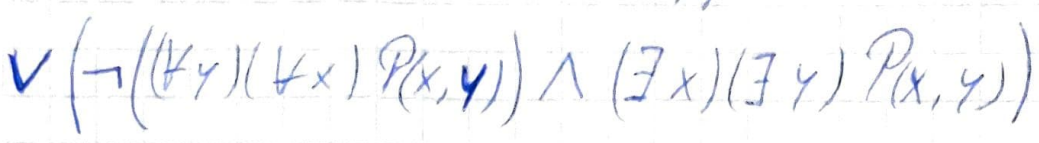 ∨ (¬((∀y)(∀x) P(x,y)) ∧ (∃x)(∃y) P(x,y))